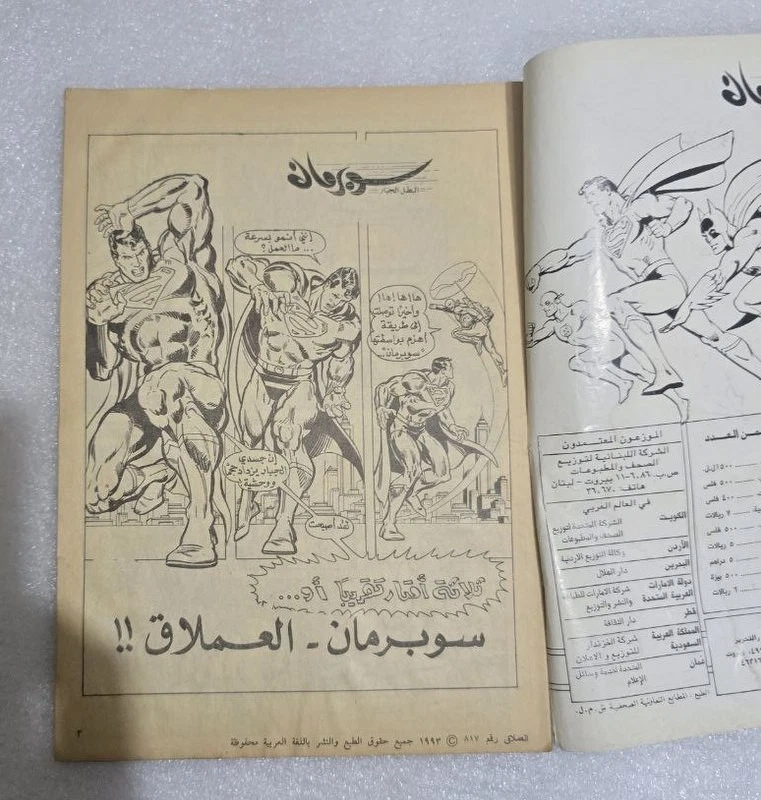 سوبرمان
البطل الجبار
إنني أنمو بسرعة
... ما العمل؟
ها! ها! ها!
وأخيرًا توصلت
إلى طريقة
أهزم بواسطتها
"سوبرمان"
إن جسدي
الجبار يزداد حجمًا
ووحشية!
لقد أصبحت
ثلاثة أمتار تقريبًا أو...
سوبرمان - العملاق !!
العملاق رقم ٨١٧ © ١٩٩٣ جميع حقوق الطبع والنشر باللغة العربية محفوظة
٣
الموزعون المعتمدون
الشركة اللبنانية لتوزيع
الصحف والمطبوعات
ص.ب. ٦٠٨٦-١١ بيروت - لبنان
هاتف: ٣٦٠٦٧٠
في العالم العربي
الكويت
الشركة المتحدة لتوزيع
الصحف والمطبوعات
الأردن
وكالة التوزيع الاردنية
البحرين
دار الهلال
دولة الامارات
العربية المتحدة
شركة الامارات للطباعة
والنشر والتوزيع
قطر
دار الثقافة
المملكة العربية
السعودية
شركة الخزندار
للتوزيع والاعلان
عمان
المتحدة لخدمة وسائل
الإعلام
ثمن العدد
٥٠٠ فلس
٤٠٠ فلس
٧ ريالات
٥٠٠ فلس
٥ ريالات
٥ دراهم
٥٠٠ بيزة
الطبع: المطابع التعاونية الصحفية ش.م.ل.